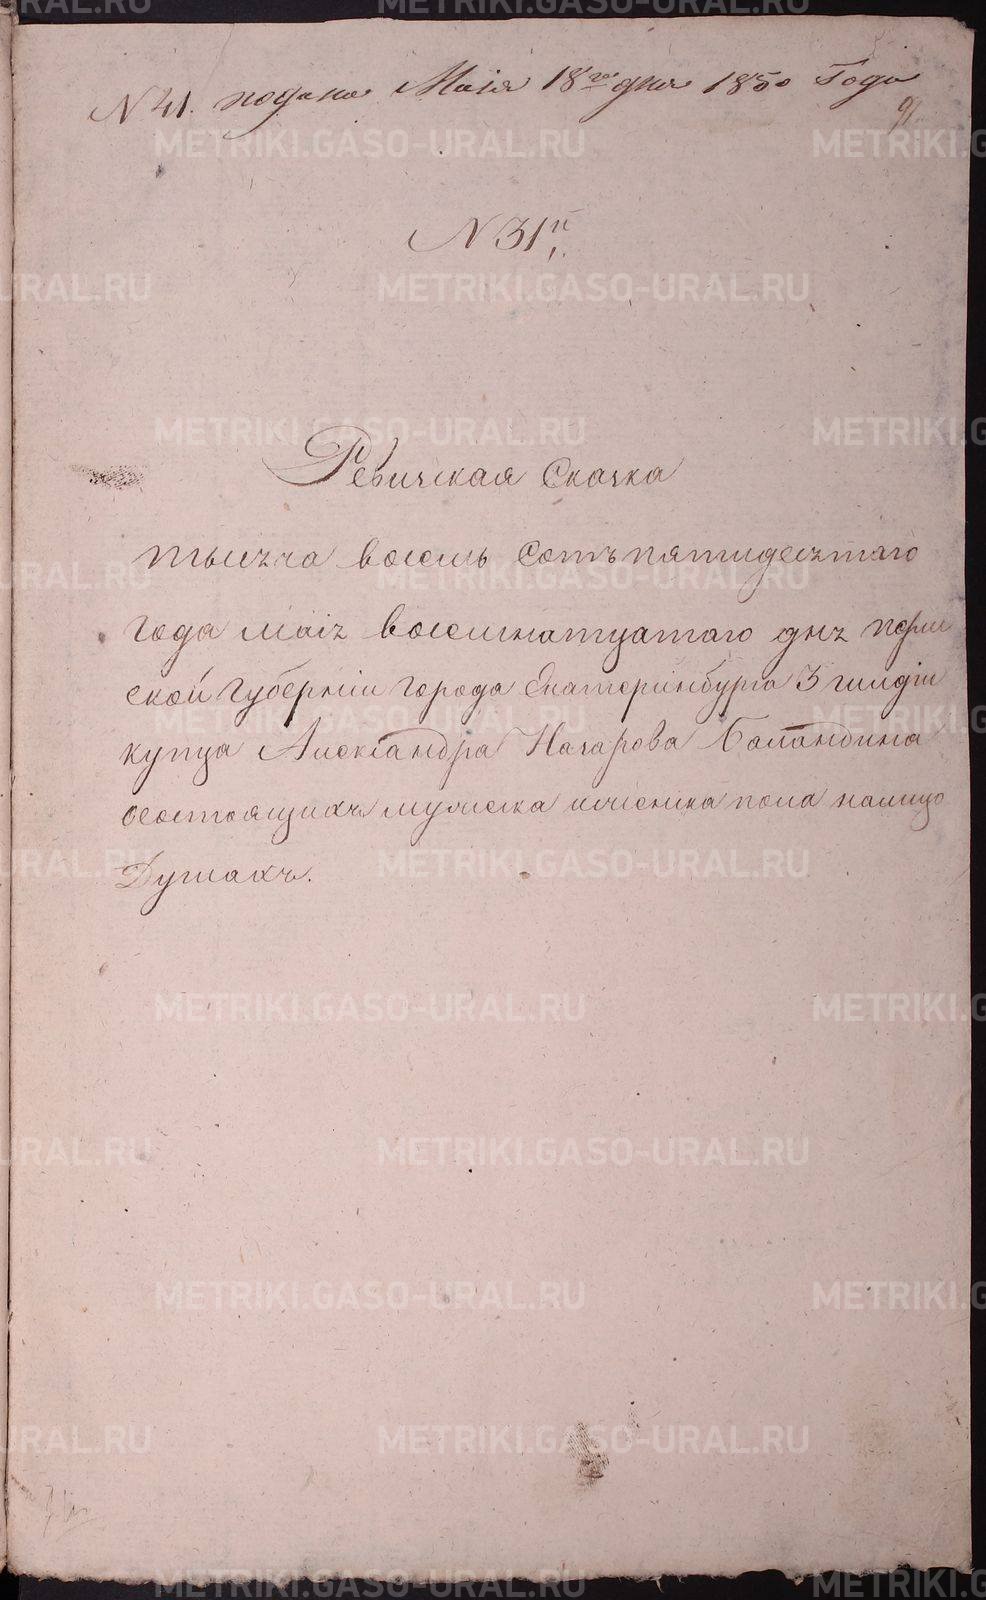 N 41. подана Маія 18го дня 1850 Года
91.
N 31й
Ревиская Скаска
тысеча восемь сотъ пятидесятаго
года маія восемнатцатаго дня перм
ской губерніи города Екатеринбурга 3 гилдіи
купца Александра Назарова Баландина
осостоящихъ мужеска иженска пола налицо
Душахъ.
METRIKI.GASO-URAL.RU